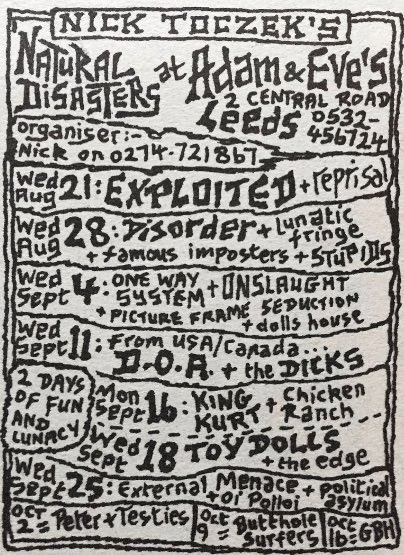 NICK TOCZEK'S
NATURAL DISASTERS at Adam & Eve's
2 CENTRAL ROAD
Leeds 0532-
456724
organiser:-
Nick on 0274-721867
Wed Aug 21: EXPLOITED + reprisal
Wed Aug 28: Disorder + lunatic fringe
+ famous imposters + STUPIDS
Wed Sept 4: ONE WAY SYSTEM + ONSLAUGHT
+ PICTURE FRAME SEDUCTION
+ dolls house
Wed Sept 11: From USA/Canada...
D.O.A. + the DICKS
2 DAYS OF FUN AND LUNACY
Mon Sept 16: KING KURT + Chicken Ranch
Wed Sept 18 TOY DOLLS
+ the edge
Wed Sept 25: External Menace + political asylum
+ Oi Polloi
Oct 2= Peter + Testies
Oct 9= Butthole Surfers
Oct 16=GBH